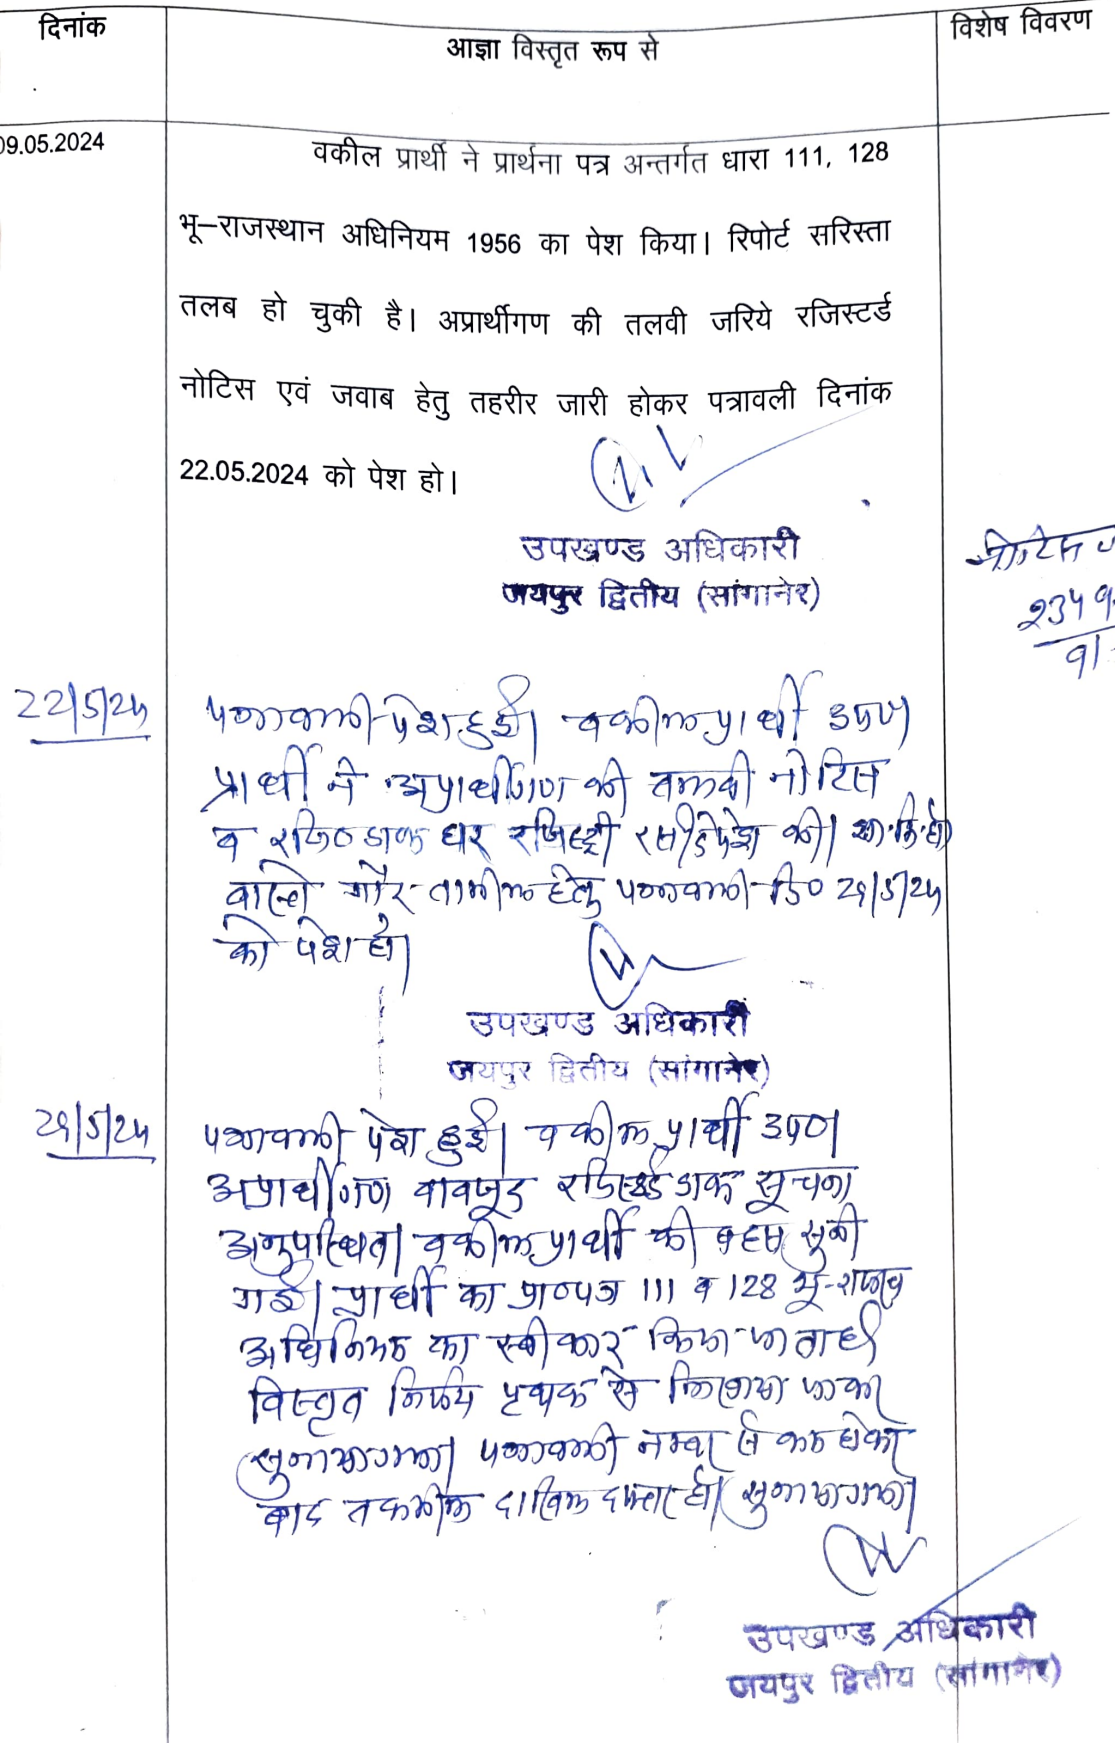 दिनांक
आज्ञा विस्तृत रूप से
विशेष विवरण
09.05.2024
वकील प्रार्थी ने प्रार्थना पत्र अन्तर्गत धारा 111, 128
भू–राजस्थान अधिनियम 1956 का पेश किया। रिपोर्ट सरिस्ता
तलब हो चुकी है। अप्रार्थीगण की तलवी जरिये रजिस्टर्ड
नोटिस एवं जवाब हेतु तहरीर जारी होकर पत्रावली दिनांक
22.05.2024 को पेश हो।
उपखण्ड अधिकारी
जयपुर द्वितीय (सांगानेर)
नोटिस
22/5/24
पत्रावली पेश हुई। वकील प्रार्थी उप०।
प्रार्थी ने अप्रार्थीगण की तलवी नोटिस
व रजि० डाक घर रजिस्ट्री रसीद पेश की।
वास्ते गौर तामील हेतु पत्रावली दि० 29/5/24
को पेश हो।
उपखण्ड अधिकारी
जयपुर द्वितीय (सांगानेर)
29/5/24
पत्रावली पेश हुई। वकील प्रार्थी उप०।
अप्रार्थीगण बावजूद रजिस्टर्ड डाक सूचना
अनुपस्थित। वकील प्रार्थी की बहस सुनी
गई। प्रार्थी का प्रा० पत्र 111 व 128 भू-राजस्व
अधिनियम का स्वीकार किया जाता है।
विस्तृत निर्णय पृथक से लिखाया जाकर
सुनाया गया। पत्रावली नम्बर से कम होकर
बाद तकमील दाखिल दफ्तर हो। सुनाया गया।
उपखण्ड अधिकारी
जयपुर द्वितीय (सांगानेर)